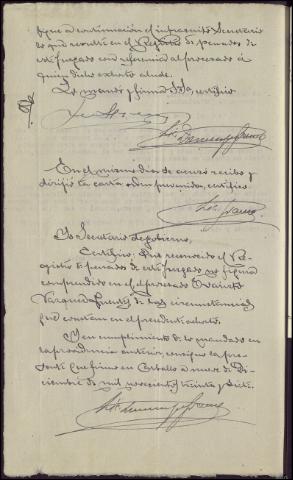 fique a continuación el infrascrito Secretario
lo que resulte en el Registro de penados de
este juzgado con referencia al procesado á
quien dicho exhorto alude.
Lo mandó y firma S.Sª, certifico
En el mismo dia de acusó recibo y
dirifió la carta orden prevenida, certifico.
Yo Secretario de gobierno,
Certifico: Que recorrido el Re-
gistro de penados de este Juzgado no figura
comprendido en el procesado Evaristo
Varquez de las circunstancias
que constan en el precedente exhorto.
Y en cumplimiento de lo mandado en
la providencia anterior, consigno la pre-
sente que firmo en Carballo a nueve de Di-
ciembre de mil novecientos treinta y siete.